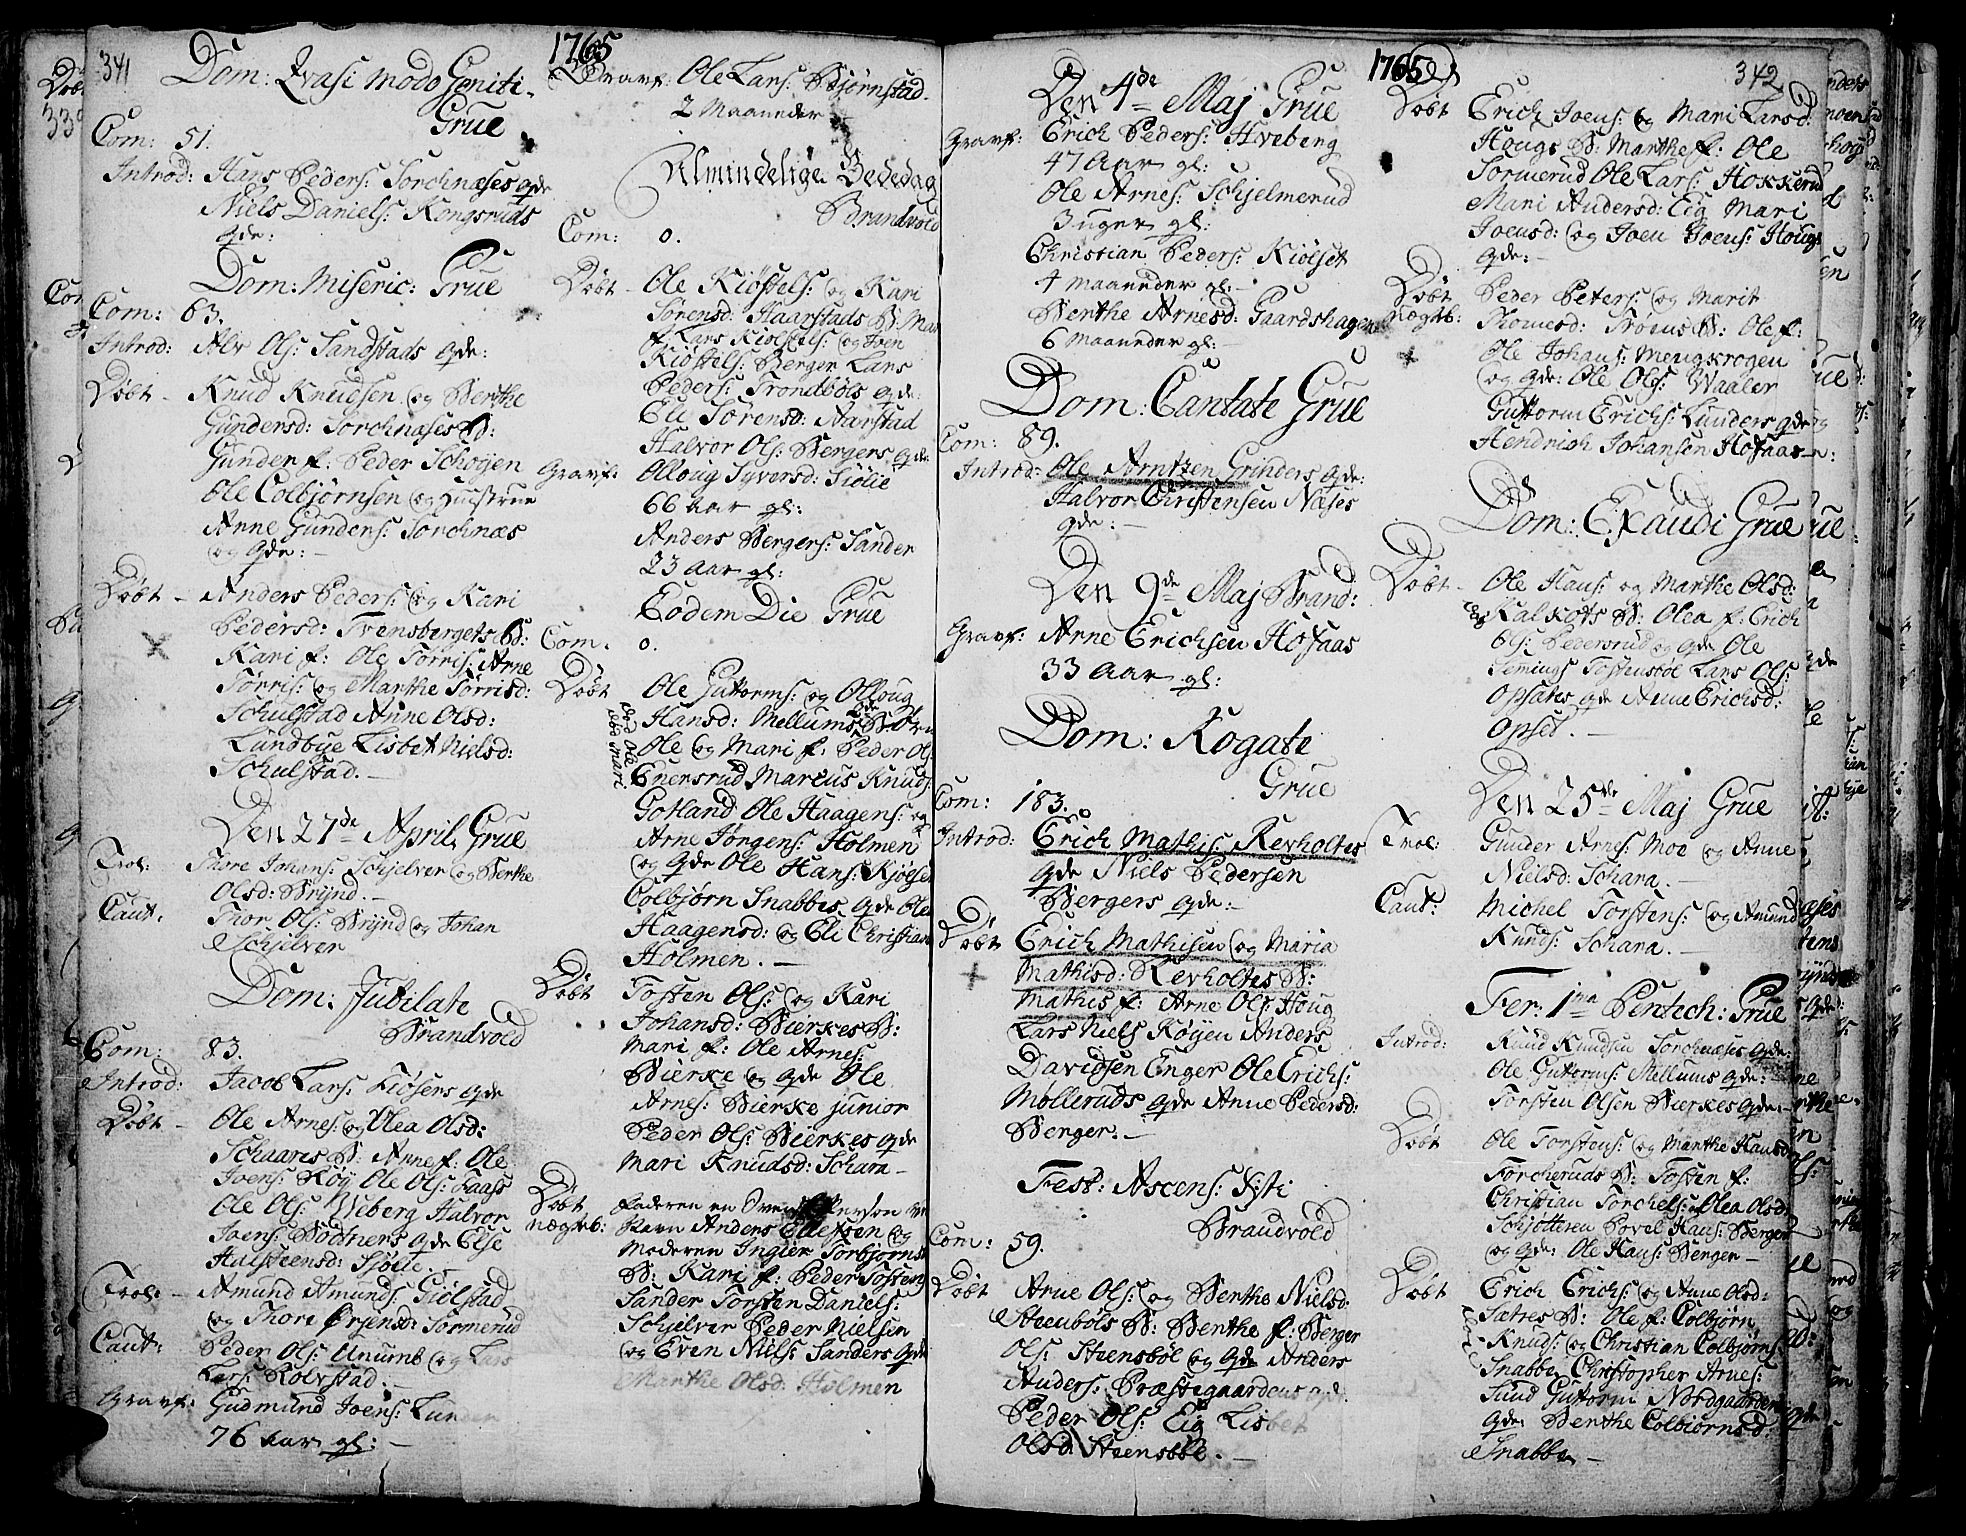 341
1765
Dom: Qvasi modo Geniti
Grue
Com: 51.
Introd: Hans Peders: Torchnæses qde
Niels Daniels: Kongsruds
qde:
Dom: Miseric: Grue
Com: 63.
Introd: Alv Ols: Sandstads qde:
Døbt - Knud Knudsen og Berthe
Gundersd: Torchnæses B:
Gunder f: Peder Schøyen
Ole Colbjørnsen og Hustrue
Anne Gunders: Torchnæs
og qde: -
Døbt - Anders Peders: og Kari
Pedersd: Tvensbergets B:
Kari f: Ole Törris: Arne
Törris: og Marthe Törrisd:
Schulstad Anne Olsd:
Lundbye Lisbet Niels:
Schulstad. -
Den 27de April Grue
Trol: Thore Johans: Schjelver og Berthe
Olsd: Brynd. -
Caut: Thor Ols: Brynd og Johan
Schjelver
Dom: Jubilate
Brandvold
Com: 83.
Introd: Jacob Lars: Tiøsers qde
Døbt - Ole Arnes: og Olea Olsd:
Schaares B: Anne f: Ole
Joens: Røy Ole Ols: Faass
Ole Ols: Weberg Halvor
Joens: Bodtners qde Else
Halsteensd: Sjölie. -
Trol: - Amund Amunds: Giölstad
og Thore Örjensd: Sormerud
Caut: Peder Ols: Unumb og Lars
Lars: Rolvstad. -
Gravf: Gudmund Joens: Lunder
76 Aar gl: -
Gravf: Ole Lars: Bjørnstad.
2 Maaneder
Almindelige Bededag
Brandvold
Com: 0.
Døbt - Ole Kiøstels: og Kari
Sørensd: Haarstads B: Mari
f: Lars Kiølstels: og Iven
Kiøstels: Berger Lars
Peders: Trondbøls qde:
Eli Sørensd: Aarstad
Halvor Ols: Bergers qde:
Gravf: Olloug Syversd: Siølie
66 Aar gl:
Anders Bergers: Sander
23 Aar gl:
Eodem Die Grue
Com. 0.
Døbt Ole Guttorms: og Olloug
Hansd: Mellums B:
Ole og Mari f: Peder Ols:
Enersrud Marcus Knuds:
Gotland Ole Haagens: og
Arne Jørgens: Holmen
og qde Ole Hans: Kjølsen
Colbjørn Snabbes qde Olea
Haagensd: og Eli Christians
Holmen. -
Døbt Tosten Ols: og Kari
Johansd: Bierkes B:
Mari f: Ole Arnes:
Bierke og qde Ole
Arnes: Bierke junior
Peder Ols: Bierkes qde
Mari Knudsd: Schara -
Døbt Faderen en Svensk Person ved
nægteb: Navn Anders Ellefsen og
Moderen Ingier Torbjørnsd
B: Kari f: Peder Tostens
Sander Torsten Daniels:
Schjelver Peder Nielsen
og Even Niels: Sanders qde
Marthe Olsd: Holmen
1765
342
Den 4de Maj Grue
Gravf: Erich Peders: Hveberg
47 Aar gl:
Ole Arnes: Schjelmerud
3 uger gl:
Christian Peders: Kiølset
4 Maaneder gl: -
Berthe Arnesd: Gaardshagen
6 Maaneder gl: -
Dom: Cantate Grue
Com: 89.
Introd: Ole Arntzen Grinders qde:
Halvor Christensen Næses
qde: -
Den 9de Maj Brand:
Gravf: Arne Erichsen Hofaas
33 Aar gl:
Dom: Rogate
Grue
Com: 183.
Introd: Erich Mathis: Revholtes
qde Niels Pedersen
Bergers qde: -
Døbt Erich Mathisen og Maria
Mathisd: Revholtes B:
Mathis f: Arne Ols: Houg
Lars Niels Røyen Anders
Davidsen Enger Ole Erichs:
Mølleruds qde Anne Pedersd:
Berger: -
Fest: Ascens: Xsti
Brandvold
Com: 59.
Døbt Arne Ols: og Berthe Nielsd:
Steenbøls B: Berthe f: Berger
Ols: Steensbøl og qde Anders
Anders: Præstegaardens qde
Peder Ols: Eig Lisbet
Olsd Steensbøl. -
Døbt Erich Joens: og Mari Larsd:
Hougs B: Marthe f: Ole
Sormerud Ole Lars: Hokkerud
Mari Andersd: Eig Mari
Joensd: og Joen Joens: Houg
qde: -
Døbt Peder Peters: og Marit
nægteb: Thomesd: Trøens B: Ole f:
Ole Johans: Mengkrogen
og qde: Ole Ols: Waaler
Guttorm Erichs: Lunders qde
Hendrich Johansen Hofaas
Dom: Exaudi Grue
Døbt - Ole Hans: og Marthe Olsd:
Kalkots B: Olea f: Erich
Ols: Pedersrud og qde Ole
Semings Tosthusbøl Lars Ols:
Opsæts qde Anne Erichsd:
Opset. -
Den 25de Maj Grue
Trol: Gunder Arnes: Moe og Anne
Nielsd: Schara. -
Caut: Michel Torstens: og Amund
Knuds: Schara. -
Fer: 1ma Pentech: Grue
Introd: Knud Knudsen Torchnæses qde:
Ole Guttorms: Mellums qde:
Torsten Olsen Bierkes qde: -
Døbt Ole Torstens: og Marthe Hansd
Torcheruds B: Tosten f:
Christian Torchels: Olea Olsd:
Schjøtteren Povel Hans: Berger
og qde: Ole Hans: Berger -
Døbt Erich Erichs: og Anne Olsd:
Sætres B: Ole f: Colbjørn
Knuds: og Christian Colbjørns:
Snabbe Christopher Arnes:
Sund Guttorm Nordgaarden
qde Berthe Colbiørnsd:
Snabbe -